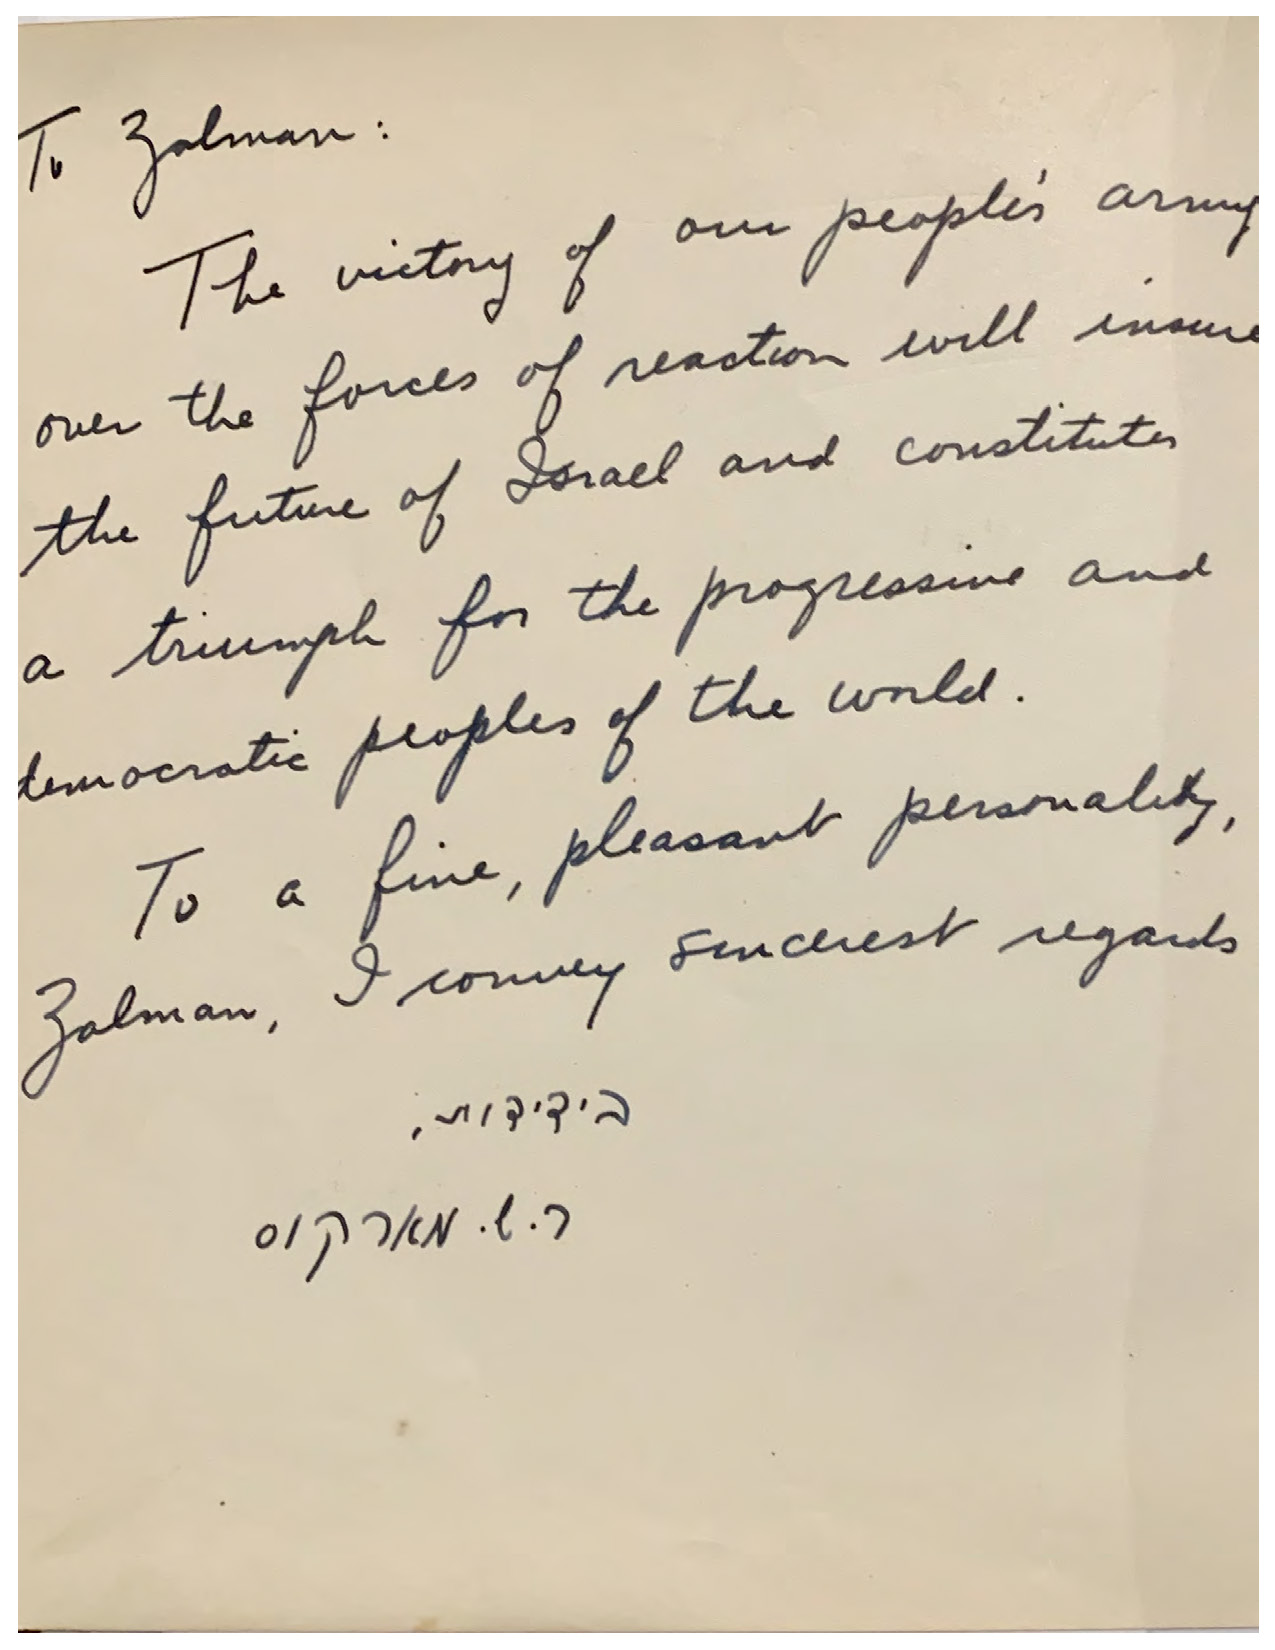 To Zalman:
The victory of our people's army
over the forces of reaction will insure
the future of Israel and constitutes
a triumph for the progressive and
democratic peoples of the world.
To a fine, pleasant personality,
Zalman, I convey sincerest regards
בידידות,
ר. ל. מארקוס